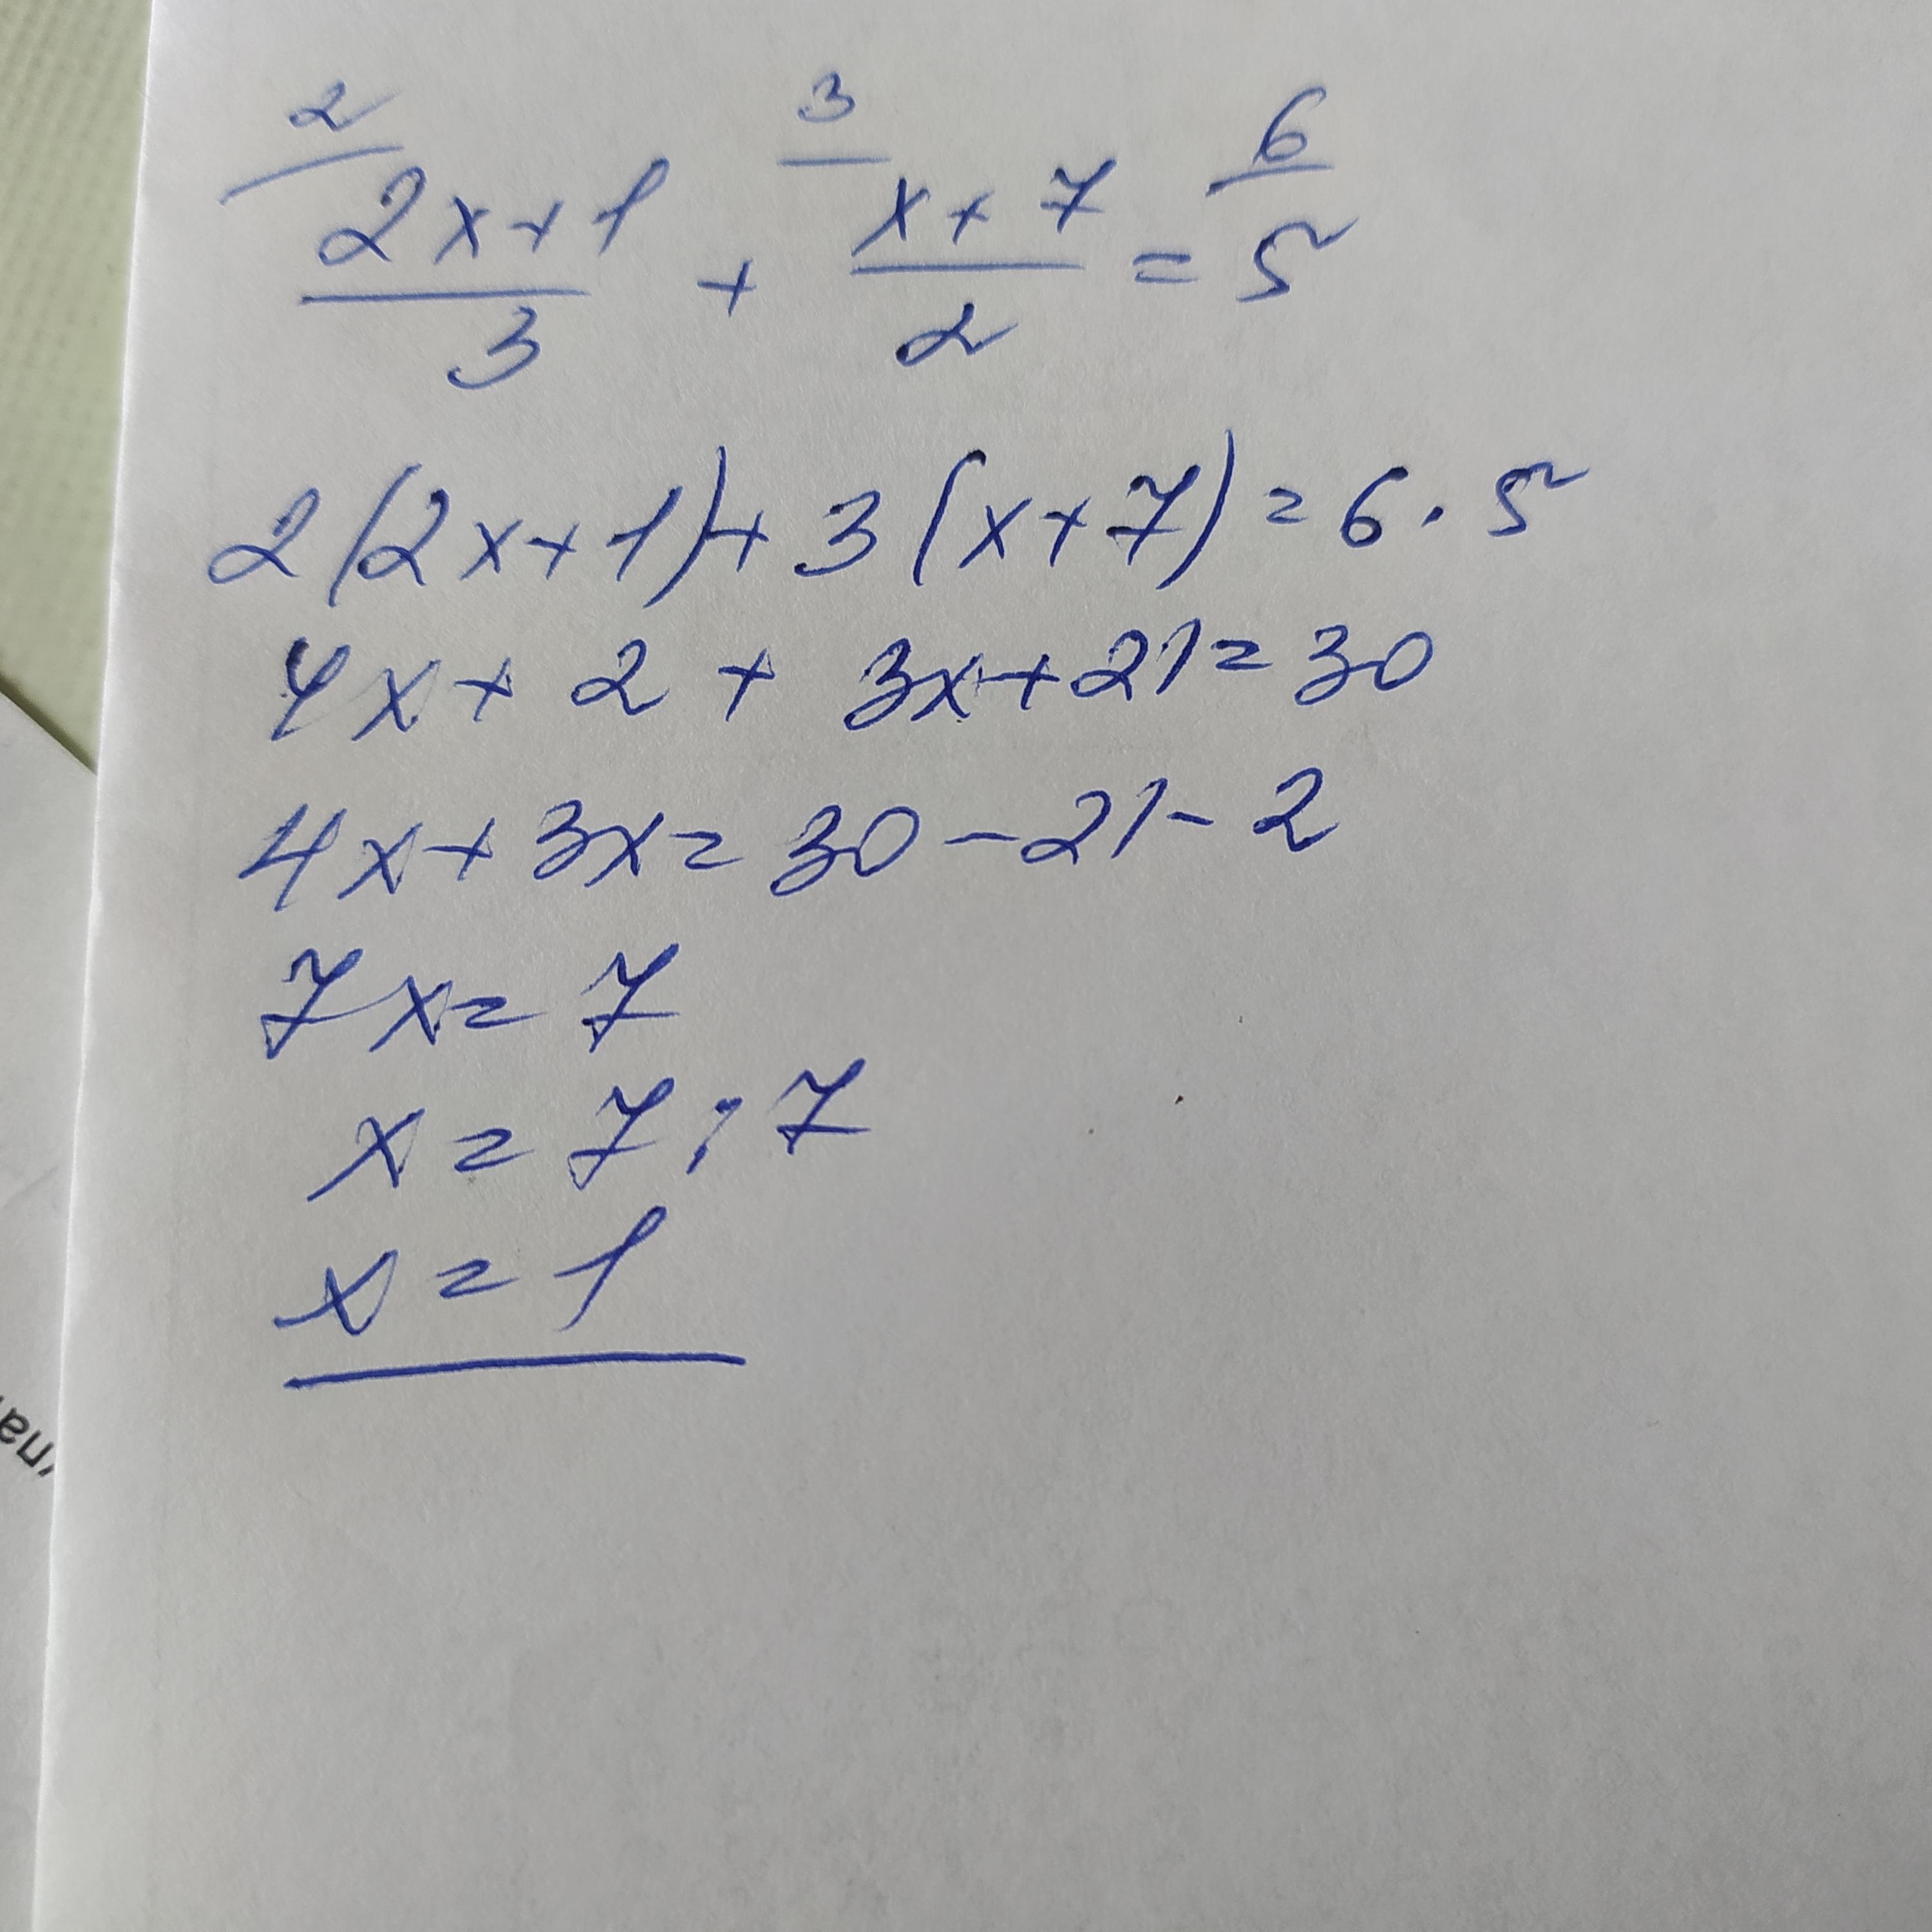 2 3 6
2x+1 x+7
+ = 5
3 2
2(2x+1)+3(x+7)=6·5
4x+2+3x+21=30
4x+3x=30-21-2
7x=7
x=7:7
x=1